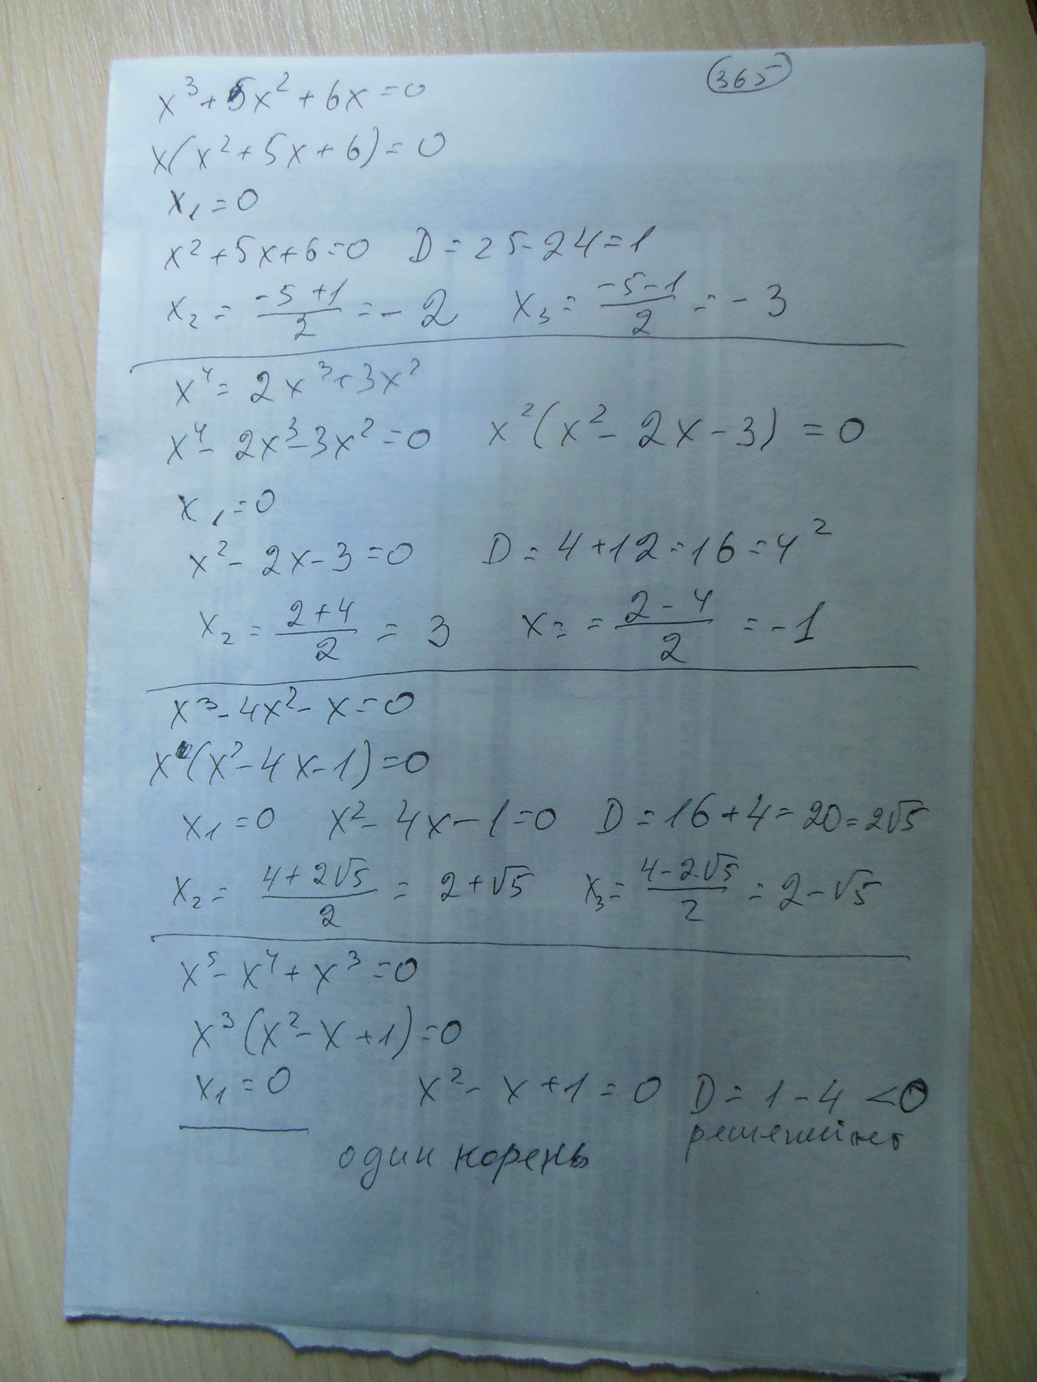 365
x³+5x²+6x=0
x(x²+5x+6)=0
x₁=0
x²+5x+6=0 D=25-24=1
x₂=(-5+1)/2=-2 x₃=(-5-1)/2=-3
x⁴=2x³+3x²
x⁴-2x³-3x²=0 x²(x²-2x-3)=0
x₁=0
x²-2x-3=0 D=4+12=16=4²
x₂=(2+4)/2=3 x==(2-4)/2=-1
x³-4x²-x=0
x(x²-4x-1)=0
x₁=0 x²-4x-1=0 D=16+4=20=2√5
x₂=(4+2√5)/2=2+√5 x₃=(4-2√5)/2=2-√5
x⁵-x⁴+x³=0
x³(x²-x+1)=0
x₁=0 x²-x+1=0 D=1-4<0
решений нет
один корень